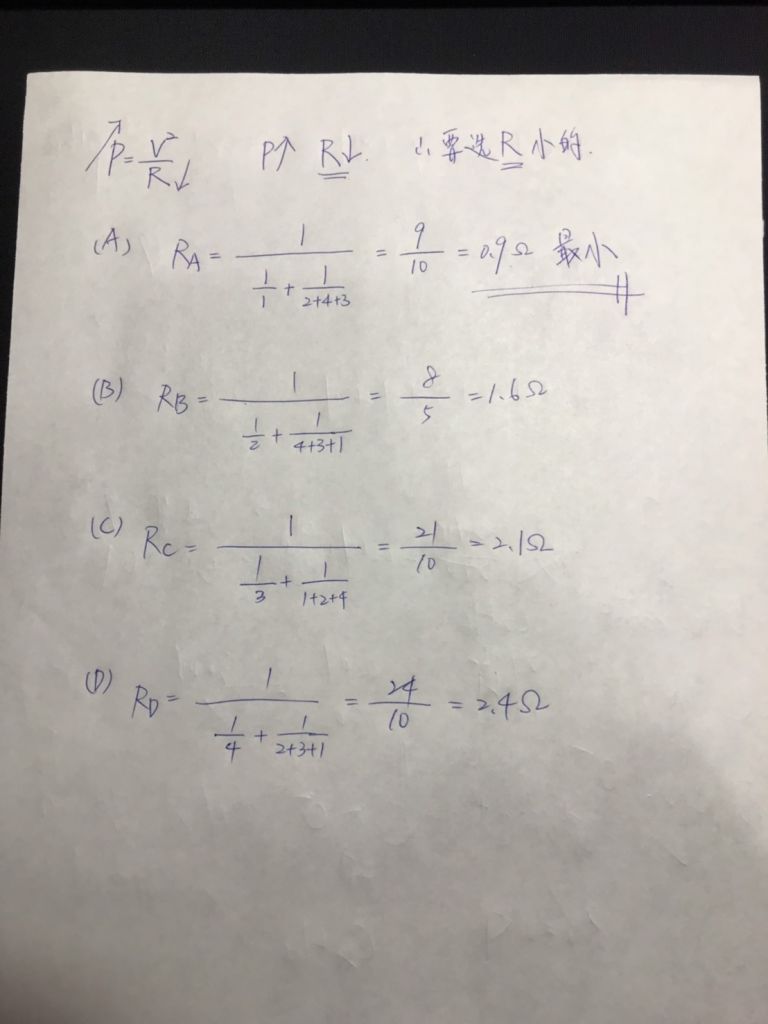 ↗P = V²/R ↓ P↑ R↓. ∴ 要选 R 小的.
(A) R_A = 1/(1/1 + 1/(2+4+3)) = 9/10 = 0.9Ω 最小
(B) R_B = 1/(1/2 + 1/(4+3+1)) = 8/5 = 1.6Ω
(C) R_C = 1/(1/3 + 1/(1+2+4)) = 21/10 = 2.1Ω
(D) R_D = 1/(1/4 + 1/(2+3+1)) = 24/10 = 2.4Ω